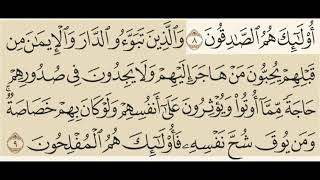 أُوْلَٰٓئِكَ هُمُ ٱلصَّٰدِقُونَ ٨ وَٱلَّذِينَ تَبَوَّءُو ٱلدَّارَ وَٱلْإِيمَٰنَ مِن
قَبْلِهِمْ يُحِبُّونَ مَنْ هَاجَرَ إِلَيْهِمْ وَلَا يَجِدُونَ فِى صُدُورِهِمْ
حَاجَةً مِّمَّآ أُوتُوا۟ وَيُؤْثِرُونَ عَلَىٰٓ أَنفُسِهِمْ وَلَوْ كَانَ بِهِمْ خَصَاصَةٌ ۚ
وَمَن يُوقَ شُحَّ نَفْسِهِۦ فَأُو۟لَٰٓئِكَ هُمُ ٱلْمُفْلِحُونَ ٩